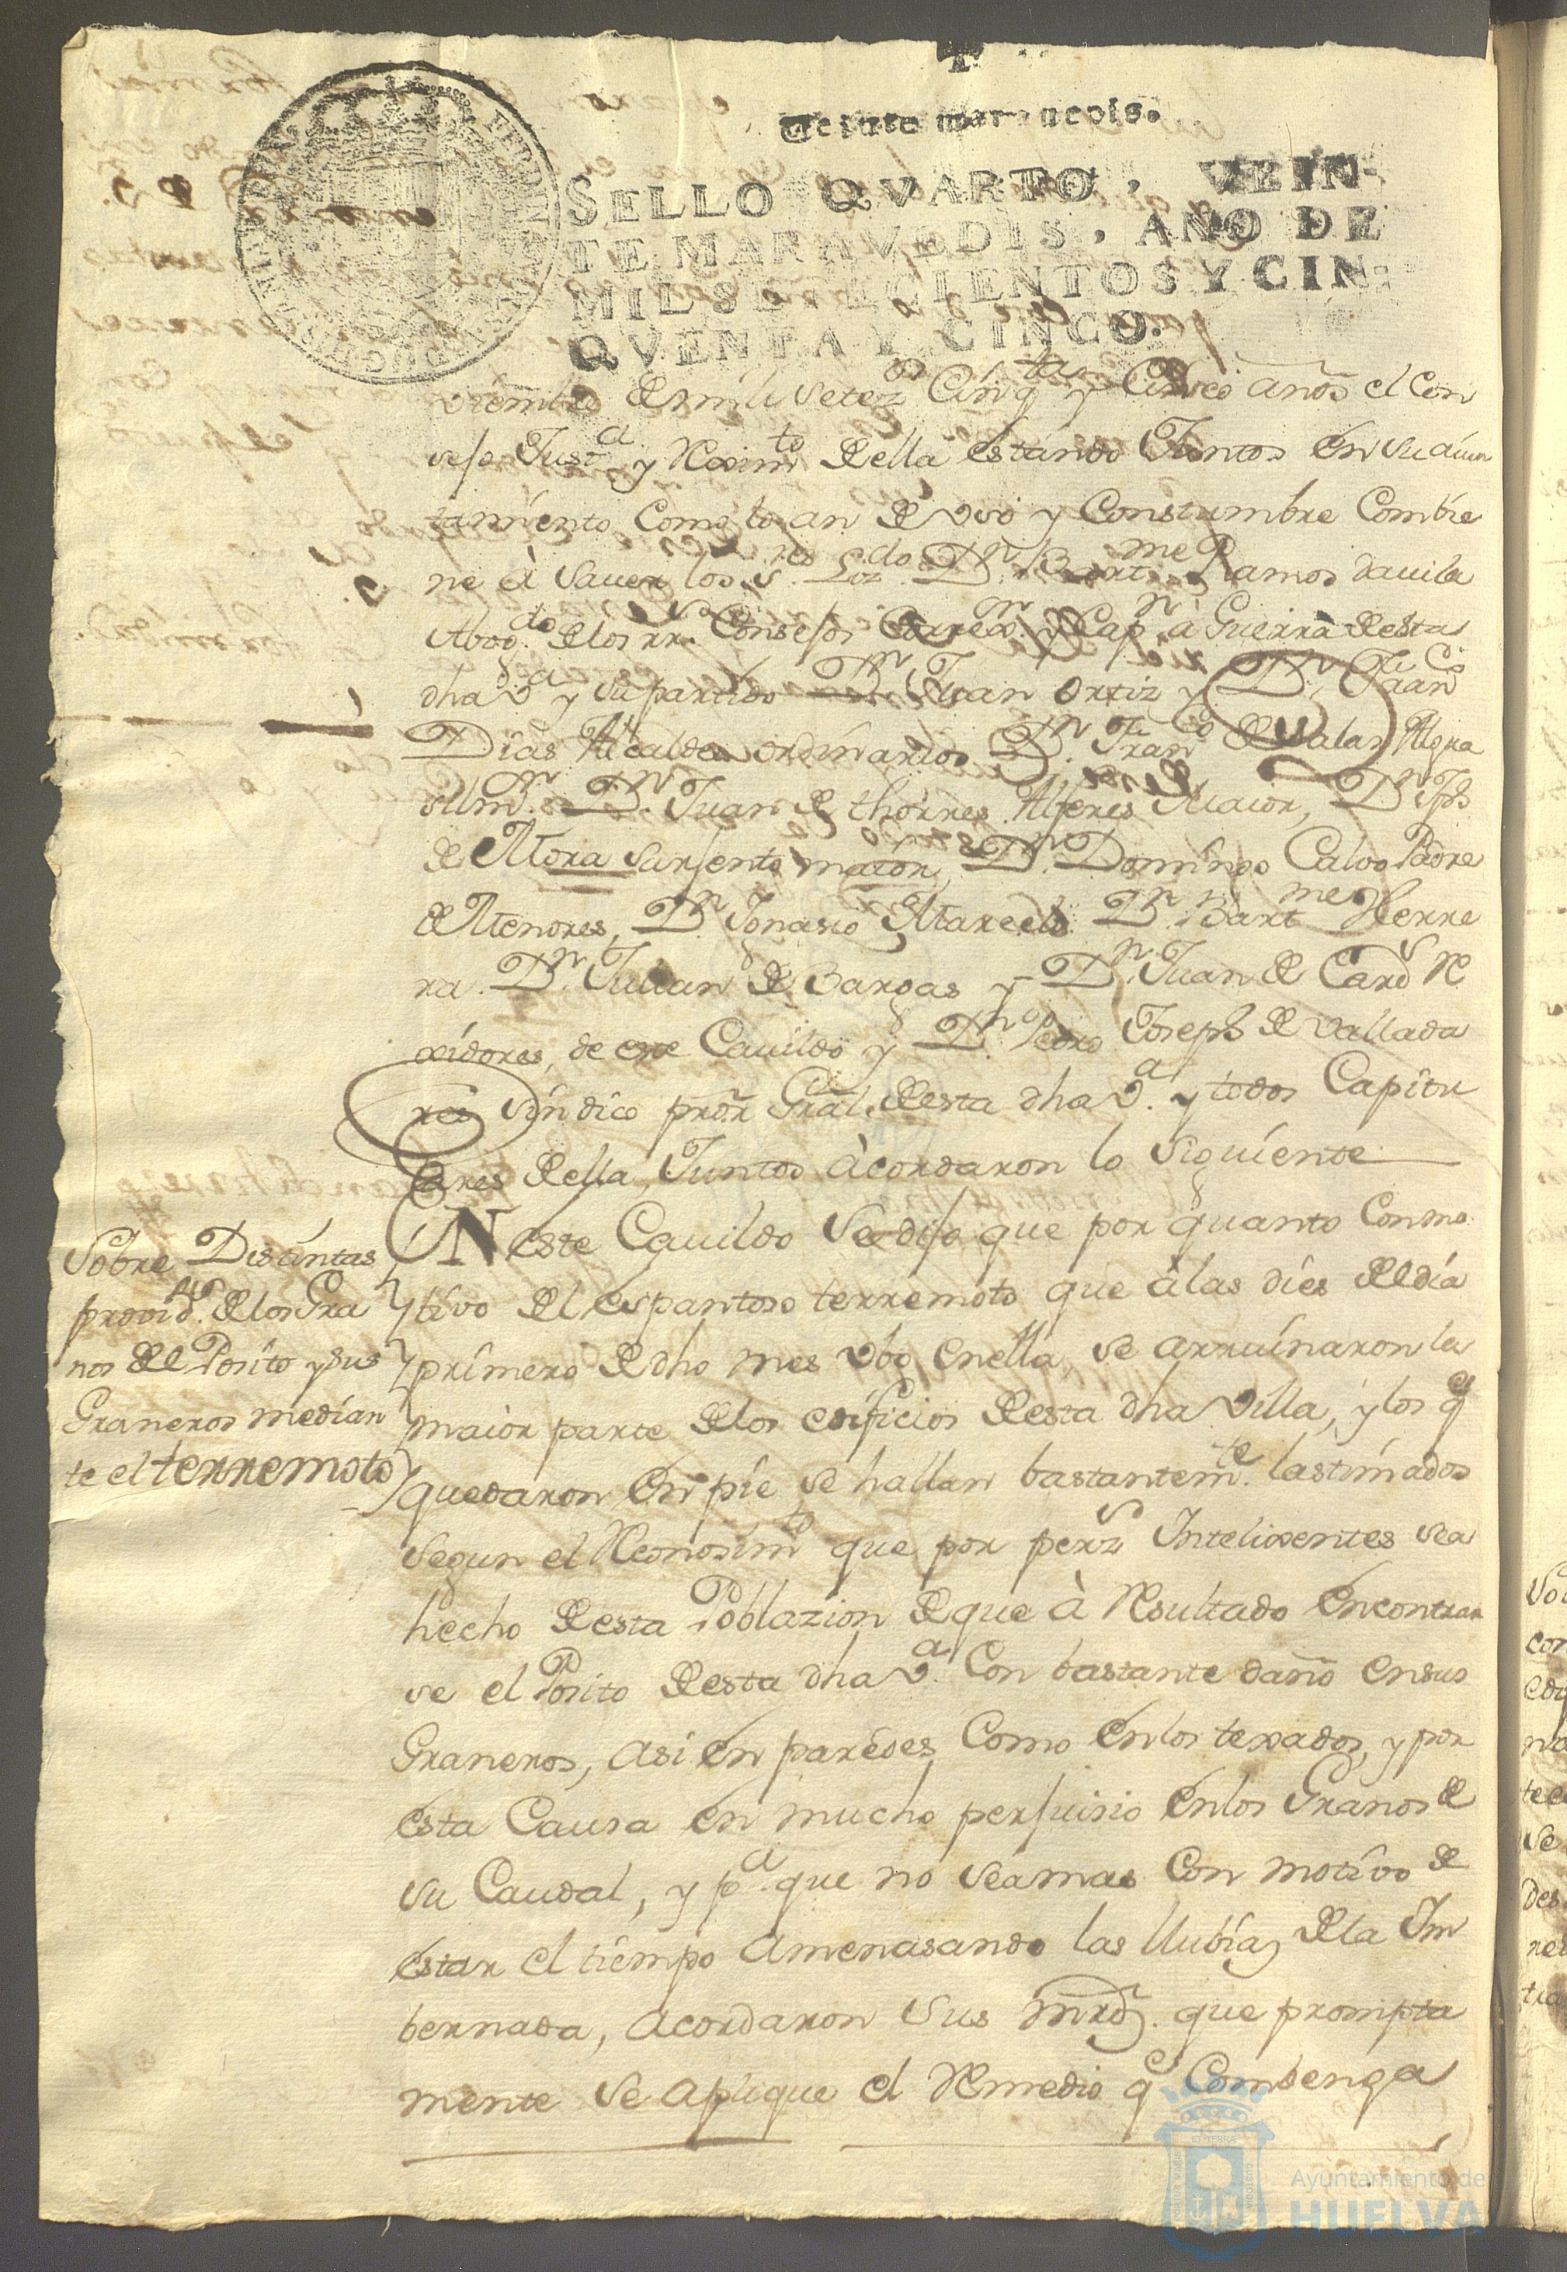 Veinte maravedis.
SELLO QVARTO, VEIN-
TE MARAVEDIS, AÑO DE
MIL SETECIENTOS Y CIN-
QVENTA Y CINCO.
viembre de mill setezos Cinqta y Cinco años el Con
sejo Justa y Reximto de ella estando Juntos en su aiun
tamiento como lo an de uso y Constumbre Combie
ne à saver los sres Lizdo Dn Bartme Ramos davila
Abogdo de los rrs Consejos Correxr y Capn à Guerra desta
dha Va y su partido Dn Juan Ortiz y Dn Franco
Dias Alcaldes ordinarios Dn Franco de Salas Algua
sil mr Dn Juan de thorres Alferes Maior, Dn Jph
de Mora Surjento maior, Dn Domingo Calvo Padre
de Menores, Dn Ignasio Marcelo Dn Bartme Herre
ra. Dn Julian de Bargas y Dn Juan de Cards Re
xidores, de este Cavildo y Dn Pedro Joseph de Vallada
res síndico pror Gral desta dha Va y todos Capitu
lares de ella, Juntos àcordaron lo siguiente
EN este Cavildo se dijo que por quanto con mo
tivo del espantoso terremoto que à las dies del día
primero de dho mes ubo en ella, se arruinaron la
maior parte de los edificios desta dha Villa, y los q
quedaron en pie se hallan bastantemte lastimados
segun el Reconosimto que por persz Intelixentes sea
hecho desta Poblazion de que à Resultado encontrar
se el Posito desta dha Va con bastante daño en sus
Graneros, asi en paredes como en los texados, y por
esta Causa en mucho perjuisio en los Granos de
su Caudal, y pa que no sea mas con motivo de
estar el tiempo amenasando las llubias de la Im
bernada, acordaron sus mrds. que prompta
mente se aplique el Remedio qe Combenga
Sobre Distintas
provids de los Gra
nos del Posito y sus
Graneros median
te el terremoto
Ayuntamiento de
HUELVA